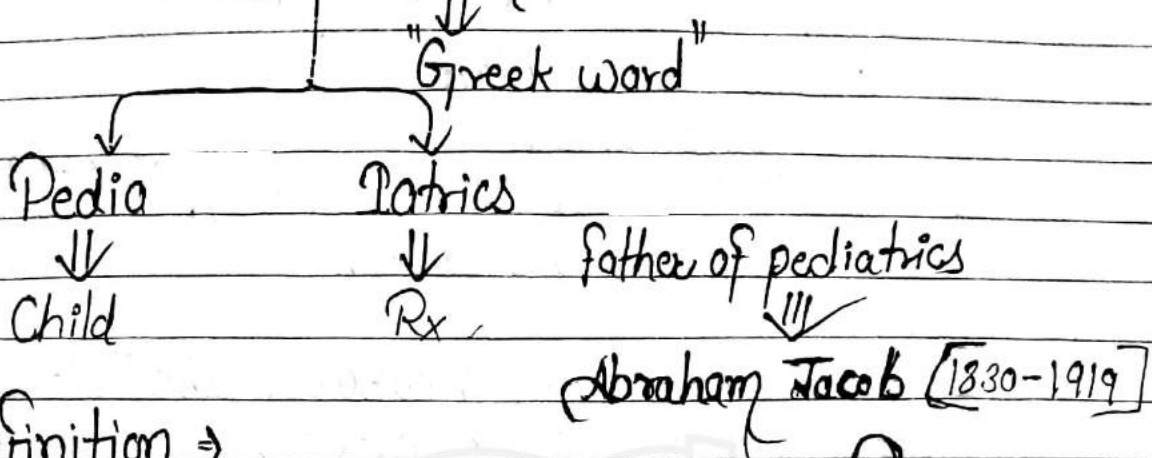 "Greek word"
Pedia Iatrics
Child Rx
father of pediatrics
Abraham Jacob [1830-1919]
finition ⇒